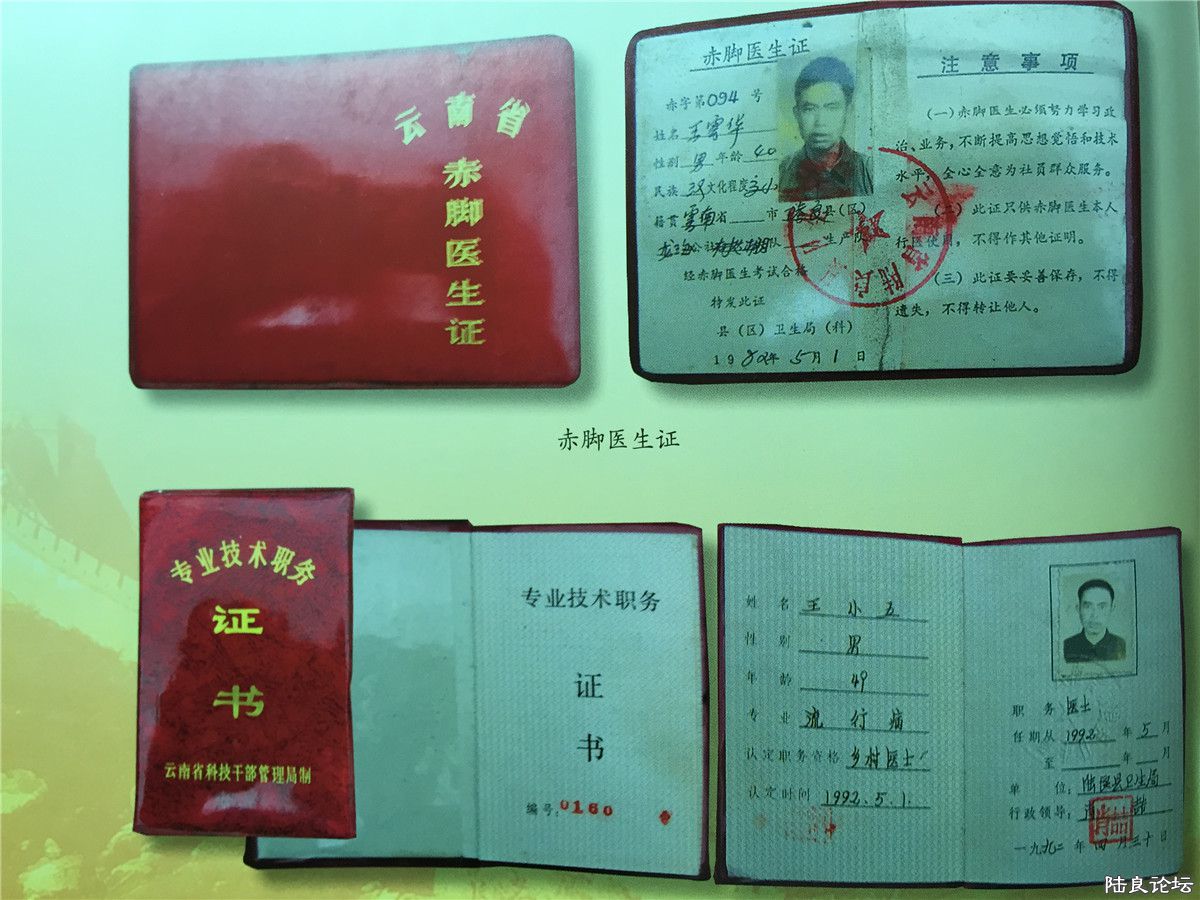 云南省
赤脚医生证
赤脚医生证
赤字第094号
姓名 王云华
性别 男 年龄 40
民族 汉 文化程度
籍贯 云南省 市 陆良县(区)
公社 队 生产队
经赤脚医生考试合格
特发此证
县(区)卫生局(科)
1982年5月1日
注意事项
(一)赤脚医生必须努力学习政
治、业务,不断提高思想觉悟和技术
水平,全心全意为社员群众服务。
(二)此证只供赤脚医生本人
行医使用,不得作其他证明。
(三)此证要妥善保存,不得
遗失,不得转让他人。
赤脚医生证
专业技术职务
证
书
云南省科技干部管理局制
专业技术职务
证
书
编号:0160
姓名 王小五
性别 男
年龄 49
专业 流行病
认定职务资格 乡村医士
认定时间 1992.5.1.
职务 医士
任期从 1992 年 5 月
至 年 月
单位: 陆良县卫生局
行政领导: 肖喆
一九九二年四月三十日
陆良论坛